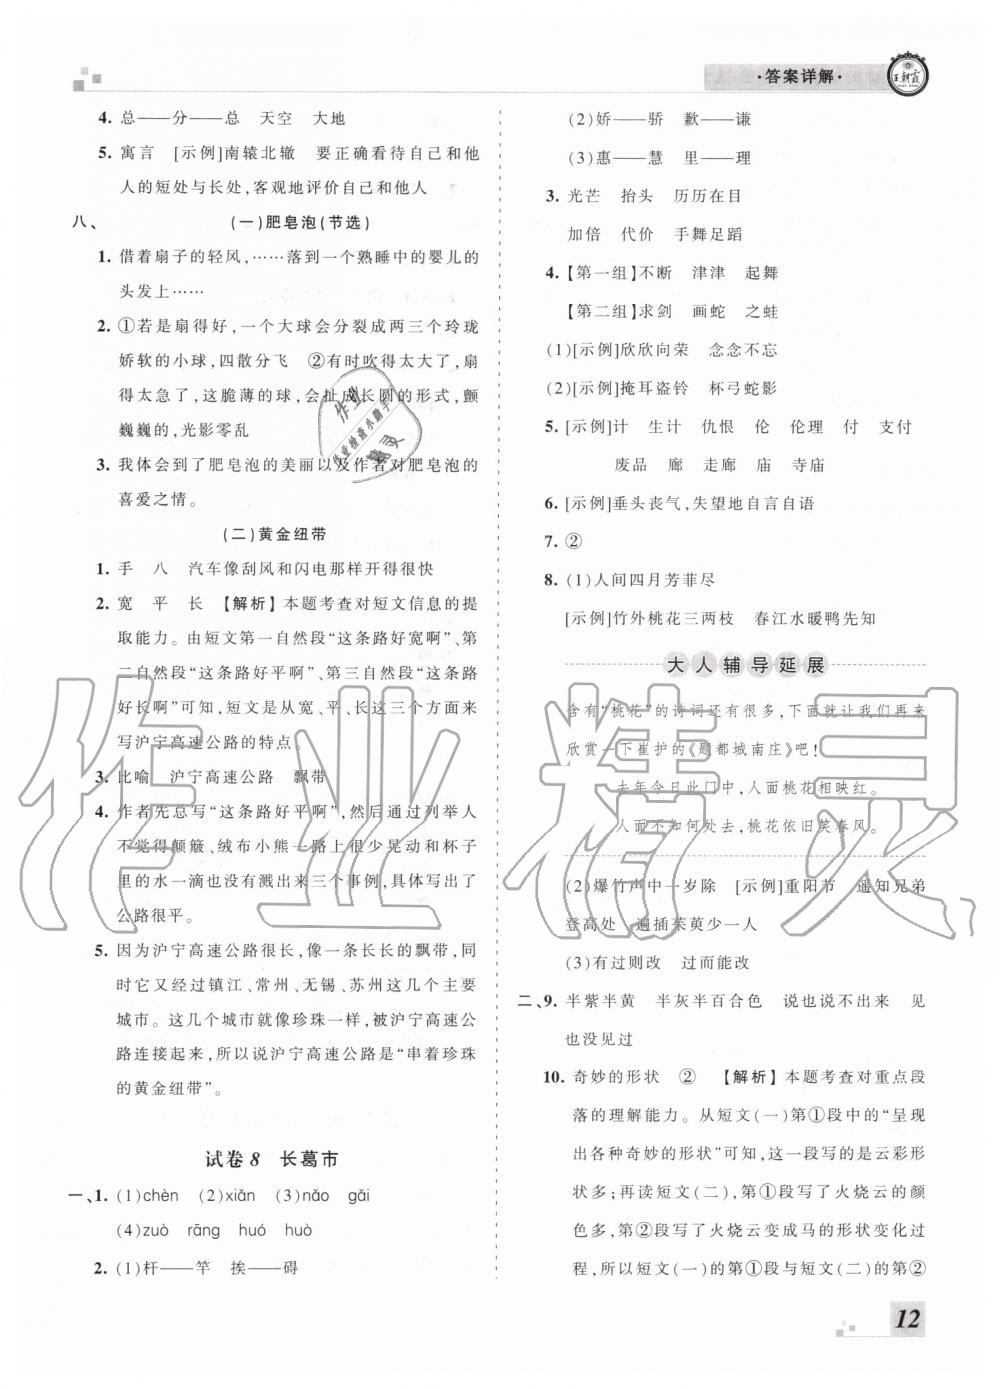 ·答案详解·
王朝霞
4. 总——分——总 天空 大地
5. 寓言 [示例]南辕北辙 要正确看待自己和他
人的短处与长处,客观地评价自己和他人
八、 (一)肥皂泡(节选)
1. 借着扇子的轻风,……落到一个熟睡中的婴儿的
头发上……
2. ①若是扇得好,一个大球会分裂成两三个玲珑
娇软的小球,四散分飞 ②有时吹得太大了,扇
得太急了,这脆薄的球,会扯成长圆的形式,颤
巍巍的,光影零乱
3. 我体会到了肥皂泡的美丽以及作者对肥皂泡的
喜爱之情。
(二)黄金纽带
1. 手 八 汽车像刮风和闪电那样开得很快
2. 宽 平 长 【解析】本题考查对短文信息的提
取能力。由短文第一自然段“这条路好宽啊”、第
二自然段“这条路好平啊”、第三自然段“这条路
好长啊”可知,短文是从宽、平、长这三个方面来
写沪宁高速公路的特点。
3. 比喻 沪宁高速公路 飘带
4. 作者先总写“这条路好平啊”,然后通过列举人
不觉得颠簸、绒布小熊一路上很少晃动和杯子
里的水一滴也没有溅出来三个事例,具体写出了
公路很平。
5. 因为沪宁高速公路很长,像一条长长的飘带,同
时它又经过镇江、常州、无锡、苏州这几个主要
城市。这几个城市就像珍珠一样,被沪宁高速公
路连接起来,所以说沪宁高速公路是“串着珍珠
的黄金纽带”。
试卷8 长葛市
一、1. (1)chèn (2)xiǎn (3)nǎo gǎi
(4)zuò rāng huó huò
2. (1)杆——竿 挨——碍
(2)娇——骄 歉——谦
(3)惠——慧 里——理
3. 光芒 抬头 历历在目
加倍 代价 手舞足蹈
4. 【第一组】不断 津津 起舞
【第二组】求剑 画蛇 之蛙
(1)[示例]欣欣向荣 念念不忘
(2)[示例]掩耳盗铃 杯弓蛇影
5. [示例]计 生计 仇恨 伦 伦理 付 支付
废品 廊 走廊 庙 寺庙
6. [示例]垂头丧气,失望地自言自语
7. ②
8. (1)人间四月芳菲尽
[示例]竹外桃花三两枝 春江水暖鸭先知
大人辅导延展
含有“桃花”的诗词还有很多,下面就让我们再来
欣赏一下崔护的《题都城南庄》吧!
去年今日此门中,人面桃花相映红。
人面不知何处去,桃花依旧笑春风。
(2)爆竹声中一岁除 [示例]重阳节 遥知兄弟
登高处 遍插茱萸少一人
(3)有过则改 过而能改
二、9. 半紫半黄 半灰半百合色 说也说不出来 见
也没见过
10. 奇妙的形状 ② 【解析】本题考查对重点段
落的理解能力。从短文(一)第①段中的“呈现
出各种奇妙的形状”可知,这一段写的是云彩形
状多;再读短文(二),第①段写了火烧云的颜
色多,第②段写了火烧云变成马的形状变化过
程,所以短文(一)的第①段与短文(二)的第②
12
作业精灵